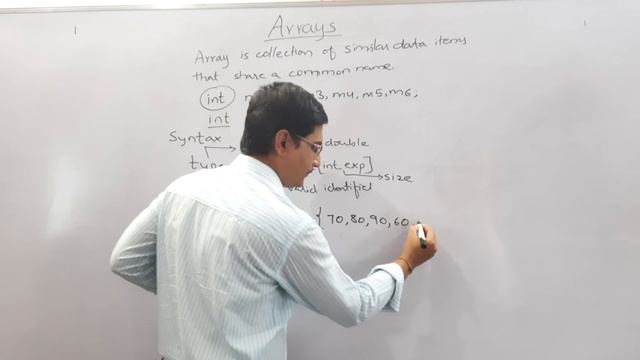 Arrays
Array is collection of similar data items
that share a common name.
int m3, m4, m5, m6;
int
Syntax double
type [int exp]
size
valid identifier
{ 70, 80, 90, 60